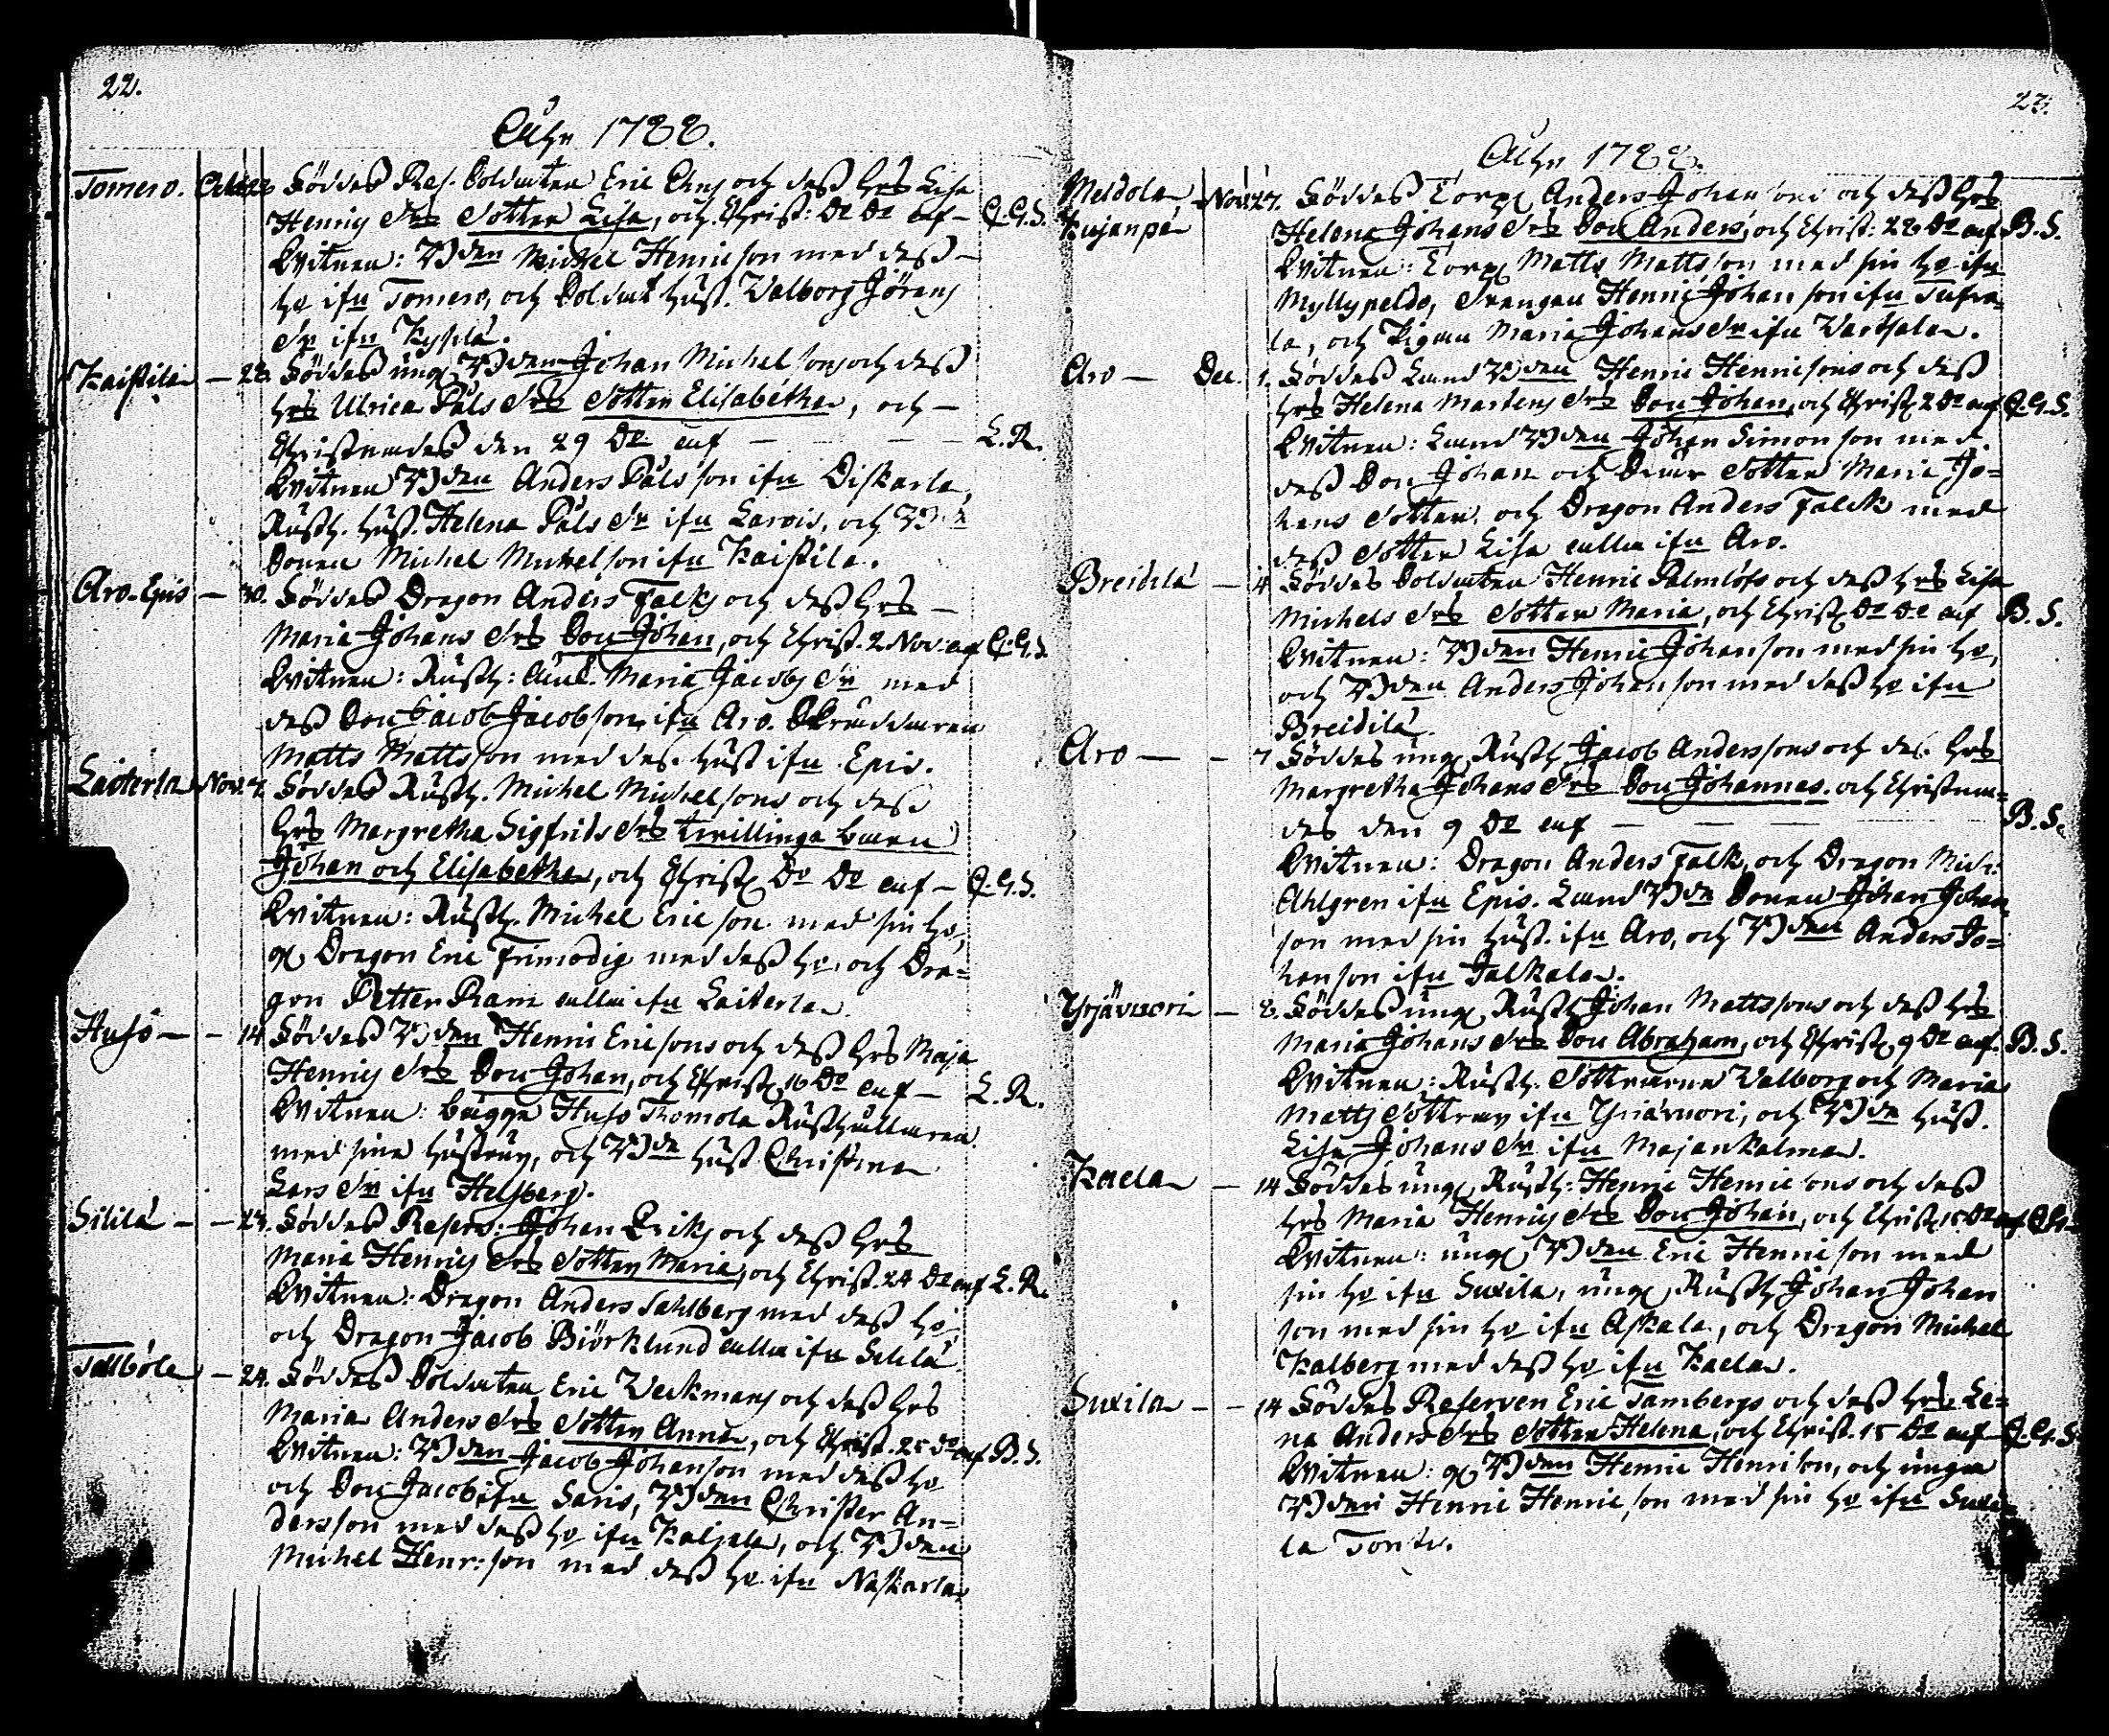 22.
Åhr 1788.
Tomero. Octob. 28. Föddes Res. Soldaten Eric Ekus och dess hrs Lisa
Henrics drs dotter Lisa, och Christ: do do af – C.G.S.
Vitnen: Bden Michel Henricson med dess –
ho ifn Tomero, och Soldat hust. Valborg Jörens
dr ifn Kyhlä.
Kaistila – 28. Föddes ung Bden Johan Michelsons och dess
hrs Ulrica Påls drs dotter Elisabetha, och –
Christnades den 29 do af – – – – L.R.
Vitnen Bden Anders Pålsson ifn Diskarla,
Rusth. hust. Helena Påls dr ifn Larvis, och
Sonen Michel Michelson ifn Kaistila.
Aro-Epis – 30. Föddes Dragon Anders Falks och dess hrs –
Maria Johans drs Son Johan, och Christ. 2 Nov. af C.G.S.
Vitnen: Rusth: Maria Jacobs dr med
dess Son Jacob Jacobson ifn Aro. Skräddaren
Matts Mattsson med des. hust ifn Epis.
Laiterla Nov. 7. Föddes Rusth. Michel Michelsons och dess
hrs Margretha Sigfrids drs twillinga barn
Johan och Elisabetha, och Christ do do af – C.G.S.
Vitnen: Rusth. Michel Ericson med sin ho,
g. Dragon Eric Frimodig med dess ho, och Dra=
gon Petter Ram alla ifn Laiterla
Huso – – 14 Föddes Bden Henric Ericsons och dess hrs Maja
Henrics drs Son Johan, och Christ 16 do af – L.R.
Vitnen: bägge Huso Thomola Rusthållaren
med sina hustrur, och Bde hust Christina
Lars dr ifn Helsberg.
Sililä – – 23. Föddes Reserv: Johan Eriks och dess hrs
Maria Henrics drs dotter Maria, och Christ. 24 do af L.R.
Vitnen: Dragon Anders Sahlberg med dess ho
och Dragon Jacob Biörklund alla ifn Sililä
Tallböle – 24. Föddes Soldaten Eric Veckmans och dess hrs
Maria Anders drs dotter Anna, och Christ. 25 do af B.S.
Vitnen: Bden Jacob Johanson med dess ho
och Son Jacob ifn Saris, Bden Christer An=
dersson med dess ho ifn Kaljala, och Bden
Michel Henr: son med dess ho ifn Naskarla
23.
Åhr 1788.
Meidola Kujanpä Nov. 27. Föddes Torp Anders Johansons och dess hrs
Helena Johans drs Son Anders, och Christ: 28 do af B.S.
Vitnen: Torp Matts Mattsson med sin ho ifn
Myllypeldo, Drengen Henric Johanson ifn Tufva=
la, och Pigan Maria Johans dr ifn Vartsala.
Aro – Dec. 1. Föddes Land Bden Henric Henricsons och dess
hrs Helena Martens drs Son Johan, och Christ 2 do af C.G.S.
Vitnen: Land Bden Johan Simonson med
dess Son Johan och Dotter Maria Jo=
hans dotter, och Dragon Anders Falck med
dess dotter Lisa alla ifn Aro.
Breidilä – 4 Föddes Soldaten Henric Palmlöfs och dess hrs Lisa
Michels drs dotter Maria, och Christ do do af B.S.
Vitnen: Bden Henric Johanson med sin ho,
och Bden Anders Johanson med dess ho ifn
Breidilä.
Aro – – 7 Föddes ung Rusth Jacob Anderssons och des. hrs
Margretha Johans drs Son Johannes. och Christna=
des den 9 do af – – – – – B.S.
Vitnen: Dragon Anders Falk, och Dragon Mich:
Ahlgren ifn Epis. Land Bde Sonen Johan Johan
son med sin hust. ifn Aro, och Bden Anders Jo=
hanson ifn Jalkala.
Yrjävuori – 8. Föddes ung Rusth Johan Mattssons och dess hrs
Maria Johans drs Son Abraham, och Christ. 9 do af. B.S.
Vitnen: Rusth. Döttrarna Valborg och Maria
Matts döttrar ifn Yriävuori, och Bde hust.
Lisa Johans dr ifn Majankalma.
Kaela – 14 Föddes ung Rusth: Henric Henricsons och dess
hrs Maria Henrics drs Son Johan, och Christ. 15 do af
Vitnen: ung Bden Eric Henricson med
sin ho ifn Suxila, ung Rusth Johan Johan
son med sin ho ifn Askala, och Dragon Michel
Kalberg med dess ho ifn Kaela.
Suxila – – 14 Föddes Reserven Eric Tambergs och dess hrs Le=
na Anders drs dotter Helena, och Christ. 15 do af C.G.S.
Vitnen: g Bden Henric Henricson, och unga
Bden Henric Henricson med sin ho ifn Suxi=
la